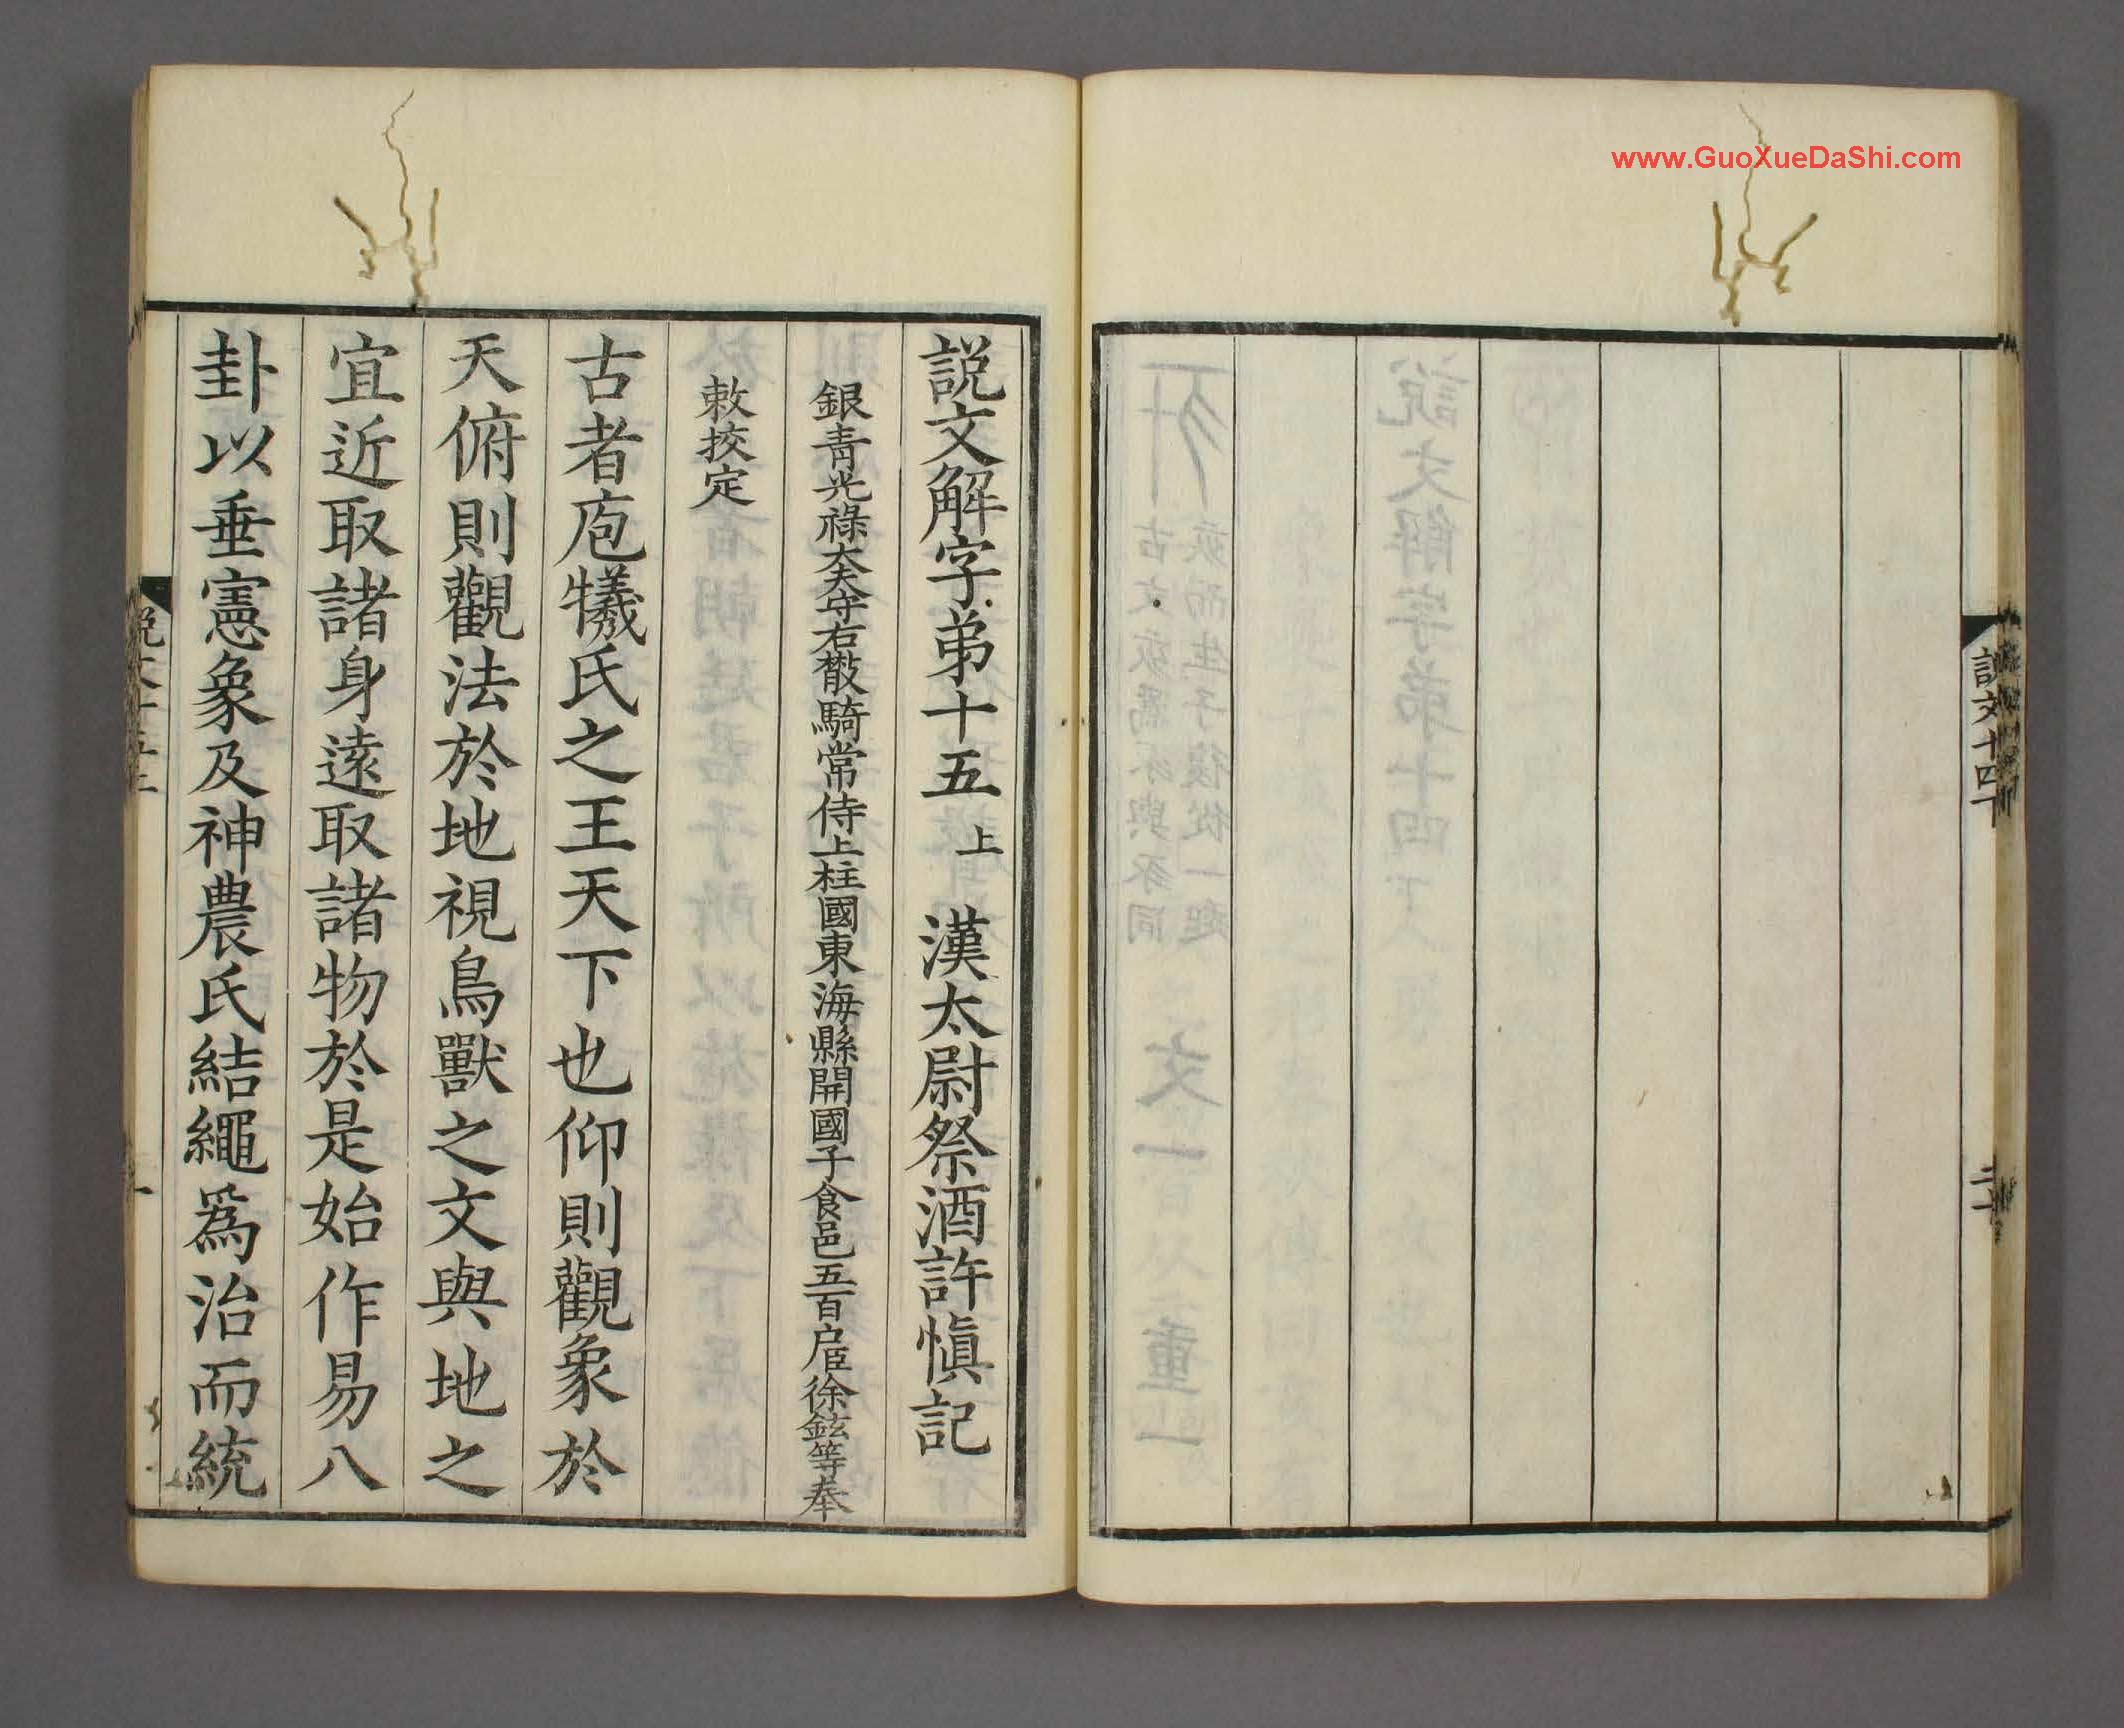 www.GuoXueDaShi.com
説文十四下
説文解字弟十五上 漢太尉祭酒許慎記
銀青光祿大夫守右散騎常侍上柱國東海縣開國子食邑五百户臣徐鉉等奉
敕挍定
古者庖犧氏之王天下也仰則觀象於
天俯則觀法於地視鳥獸之文與地之
宜近取諸身遠取諸物於是始作易八
卦以垂憲象及神農氏結繩爲治而統
説文十五上
一